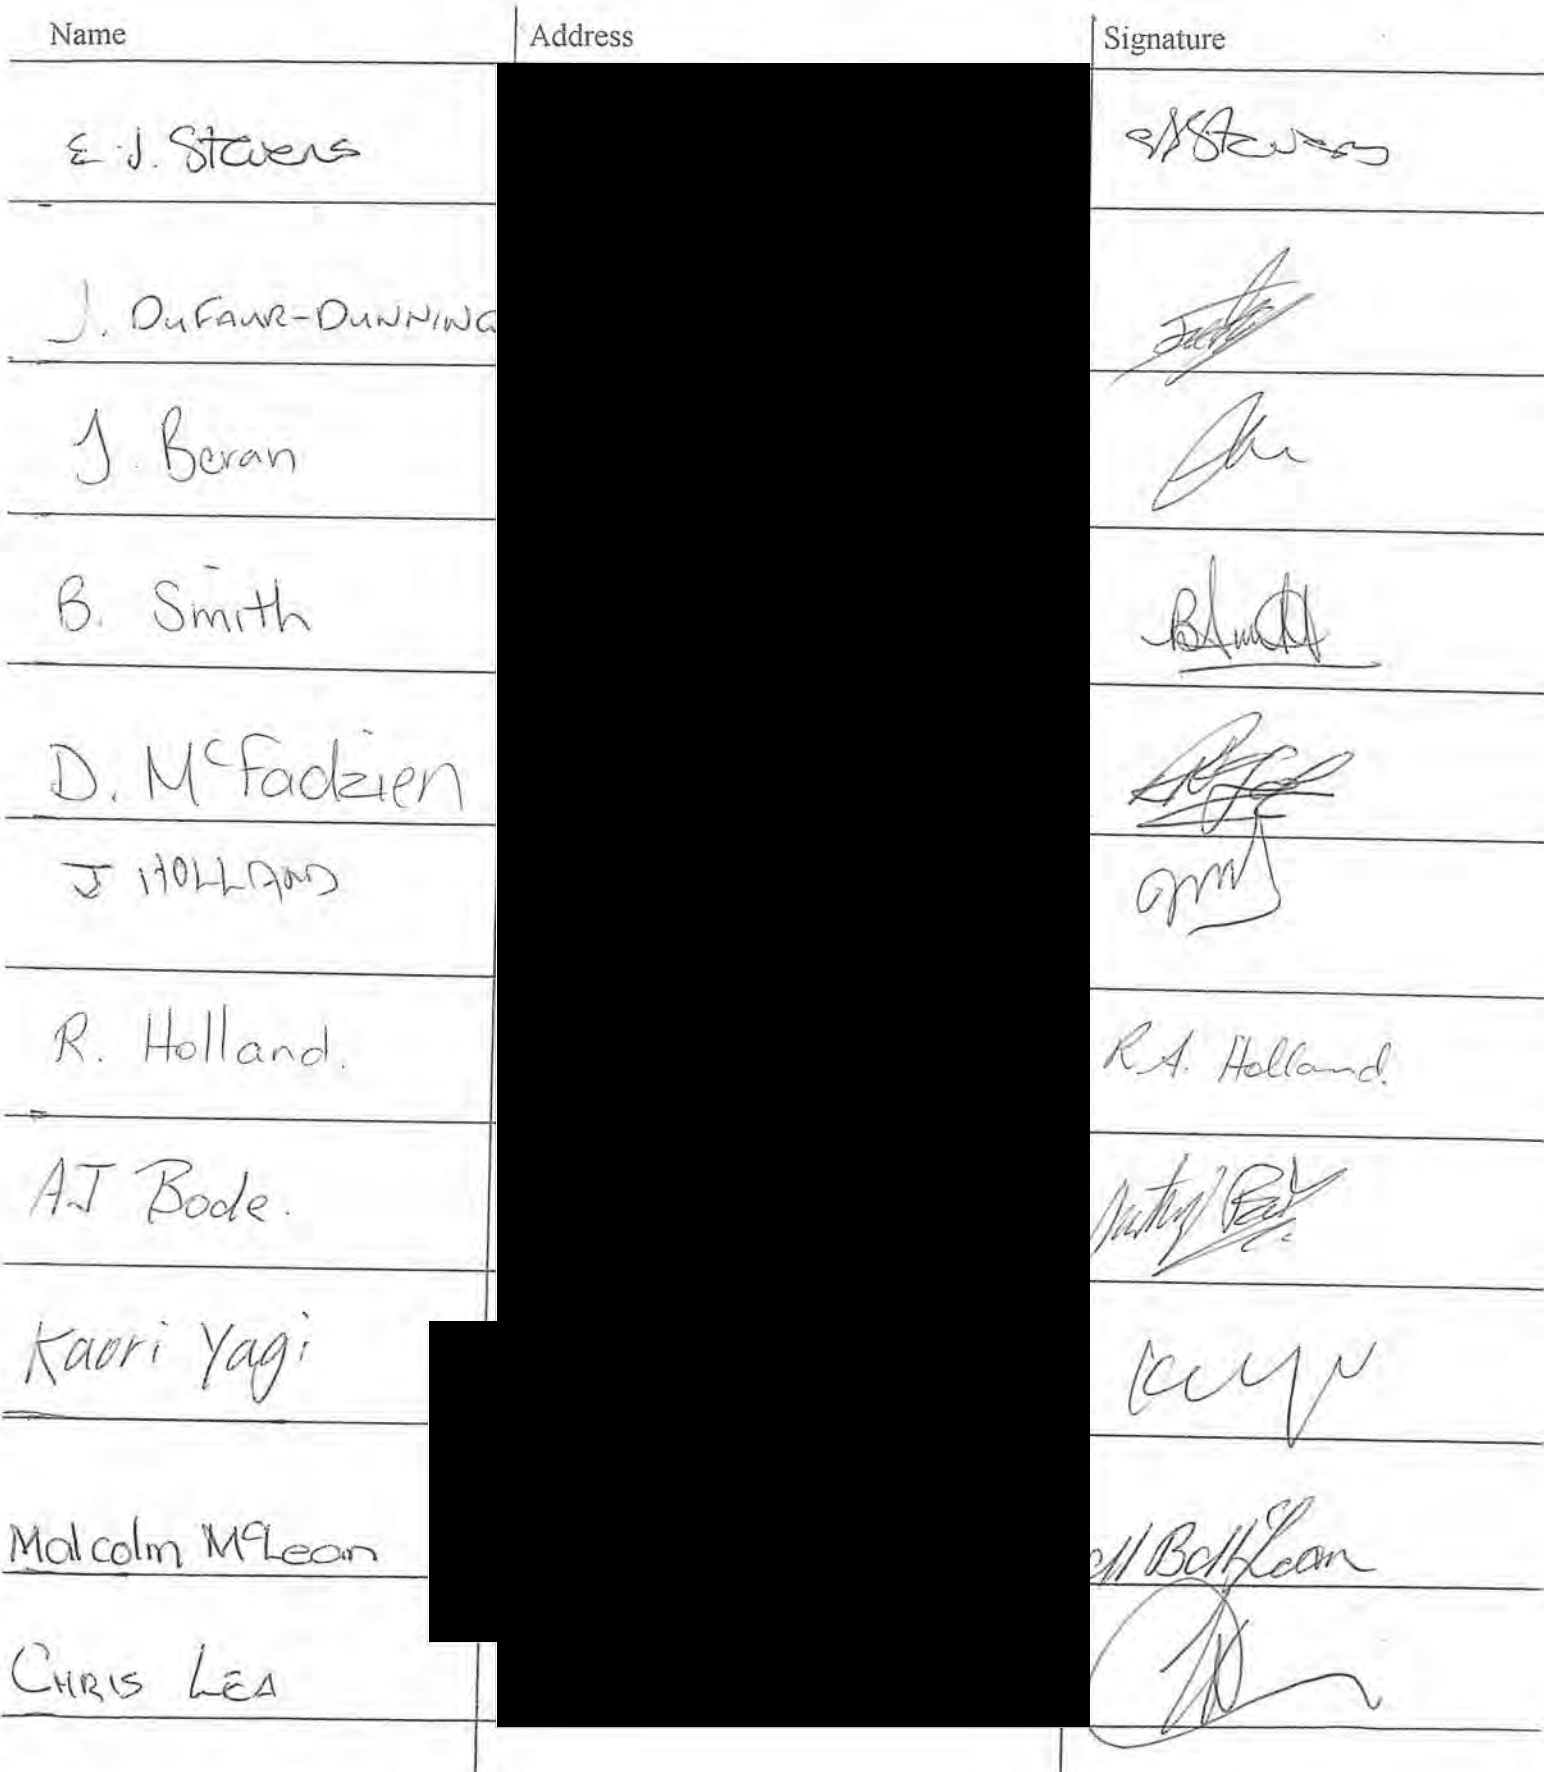 Name Address Signature
E.J. Stevens
J. DuFaur-Dunning
J. Beran
B. Smith B Smith
D. McFadzien
J HOLLAND
R. Holland. R.A. Holland.
AJ Bode.
Kaori Yagi
Malcolm McLean
CHRIS LEA